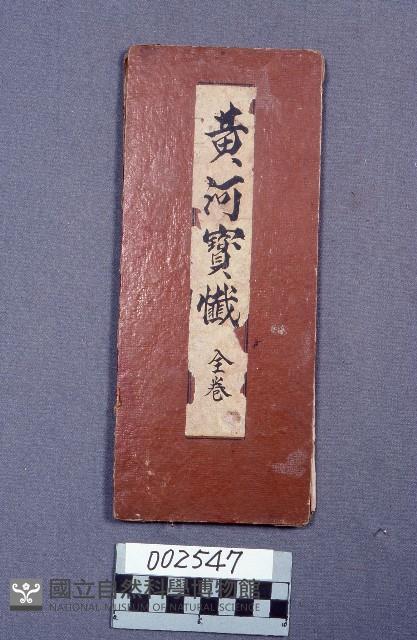 黃河寶懺
全卷
002547
國立自然科學博物館
NATIONAL MUSEUM OF NATURAL SCIENCE